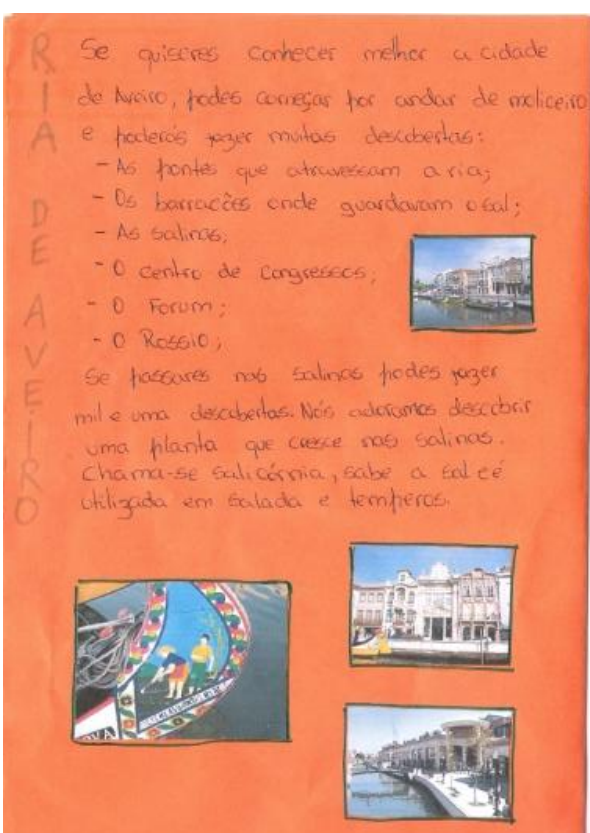 RIA DE AVEIRO
Se quiseres conhecer melhor a cidade
de Aveiro, podes começar por andar de moliceiro
e poderás fazer muitas descobertas:
- As pontes que atravessam a ria;
- Os barracões onde guardavam o sal;
- As salinas;
- O centro de congressos;
- O Forum;
- O Rossio;
Se passares nas salinas podes fazer
mil e uma descobertas. Nós adoramos descobrir
uma planta que cresce nas salinas.
Chama-se salicórnia, sabe a sal e é
utilizada em salada e temperos.